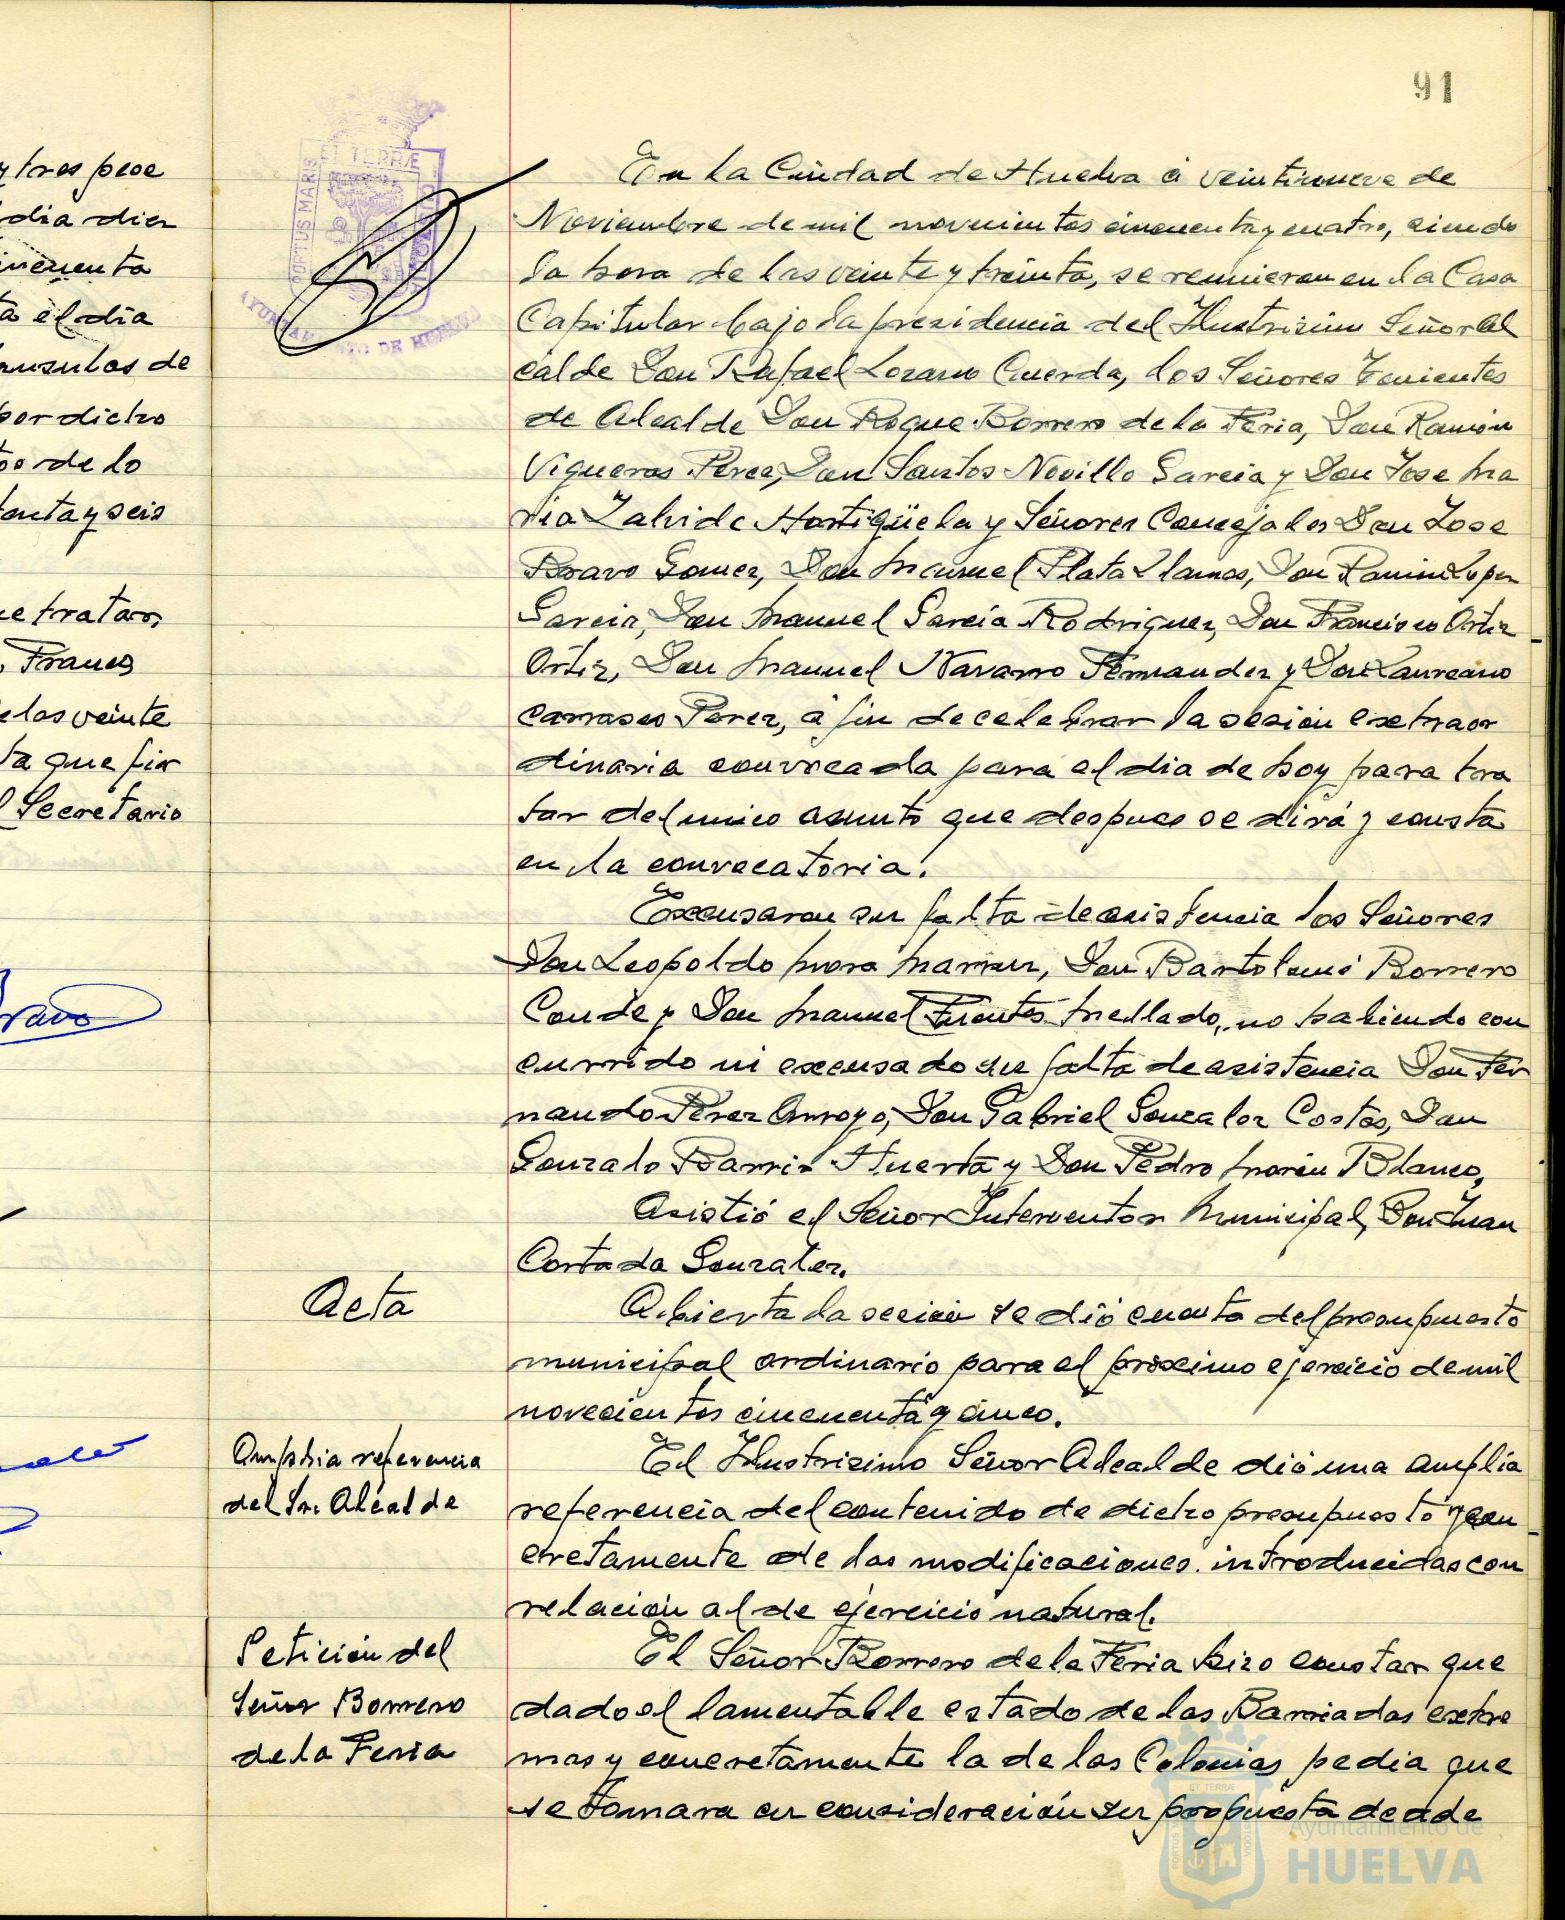 91
y tres pese
dia diez
cincuenta
ta el dia
de
por dicho
de lo
tenta y seis
ue tratar,
, Franco
e las veinte
ta que fir
l Secretario
ET TERRÆ
PORTUS MARIS
AYUNTAMIENTO DE HUELVA
En la Ciudad de Huelva á veintinueve de
Noviembre de mil novecientos cincuenta y cuatro, siendo
la hora de las veinte y treinta, se reunieron en la Casa
Capitular bajo la presidencia del Ilustrisimo Señor Al
calde Don Rafael Lozano Cuerda, los Señores Tenientes
de Alcalde Don Roque Borrero de la Feria, Don Ramón
Vigueras Perez, Don Santos Novillo Garcia y Don Jose Ma
ria Zalvide Hortigüela y Señores Concejales Don Jose
Bravo Gomez, Don Manuel Plata Llamas, Don Ramiro Lopez
Garcia, Don Manuel Garcia Rodriguez, Don Francisco Ortiz
Ortiz, Don Manuel Navarro Fernandez y Don Laureano
Carrasco Perez, á fin de celebrar la sesión extraor
dinaria convocada para el dia de hoy para tra
tar del unico asunto que despues se dirá y consta
en la convocatoria.
Excusaron su falta de asistencia los Señores
Don Leopoldo Mora Don Bartolomé Borrero
Conde y Don Manuel Fuentes Mellado, no habiendo con
currido ni excusado su falta de asistencia Don Fer
nando Perez Arroyo, Don Gabriel Gonzalez Costas, Don
Gonzalo Barris Huerta y Don Pedro Morón Blanco,
Asistió el Señor Interventor Municipal, Don Juan
Cortada Gonzalez.
Acta
Abierta la sesión se dió cuenta del presupuesto
municipal ordinario para el próximo ejercicio de mil
novecientos cincuenta y cinco.
Amplia referencia
del Sr. Alcalde
El Ilustrisimo Señor Alcalde dió una amplia
referencia del contenido de dicho presupuesto y con
cretamente de las modificaciones introducidas con
relación al de ejercicio natural.
Petición del
Señor Borrero
de la Feria
El Señor Borrero de la Feria hizo constar que
dado el lamentable estado de las Barriadas extre
mas y concretamente la de las Colonias pedia que
se tomara en consideración su propuesta desde
Ayuntamiento de
HUELVA